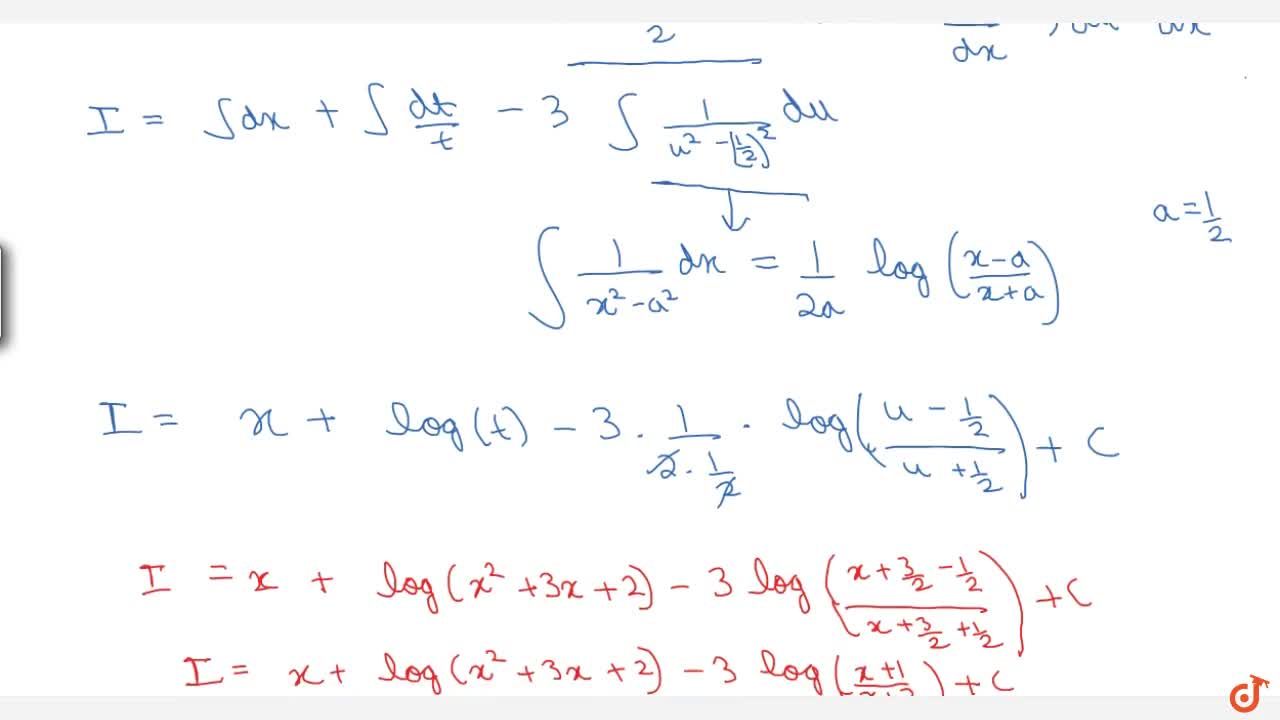 2
dx
I = ∫dx + ∫ dt/t - 3 ∫ 1/(u² - (1/2)²) du
a = 1/2
∫ 1/(x² - a²) dx = 1/2a log((x-a)/(x+a))
I = x + log(t) - 3 . 1/(2 . 1/2) . log((u - 1/2)/(u + 1/2)) + C
I = x + log(x² + 3x + 2) - 3 log((x + 3/2 - 1/2)/(x + 3/2 + 1/2)) + C
I = x + log(x² + 3x + 2) - 3 log((x+1)/ ) + C